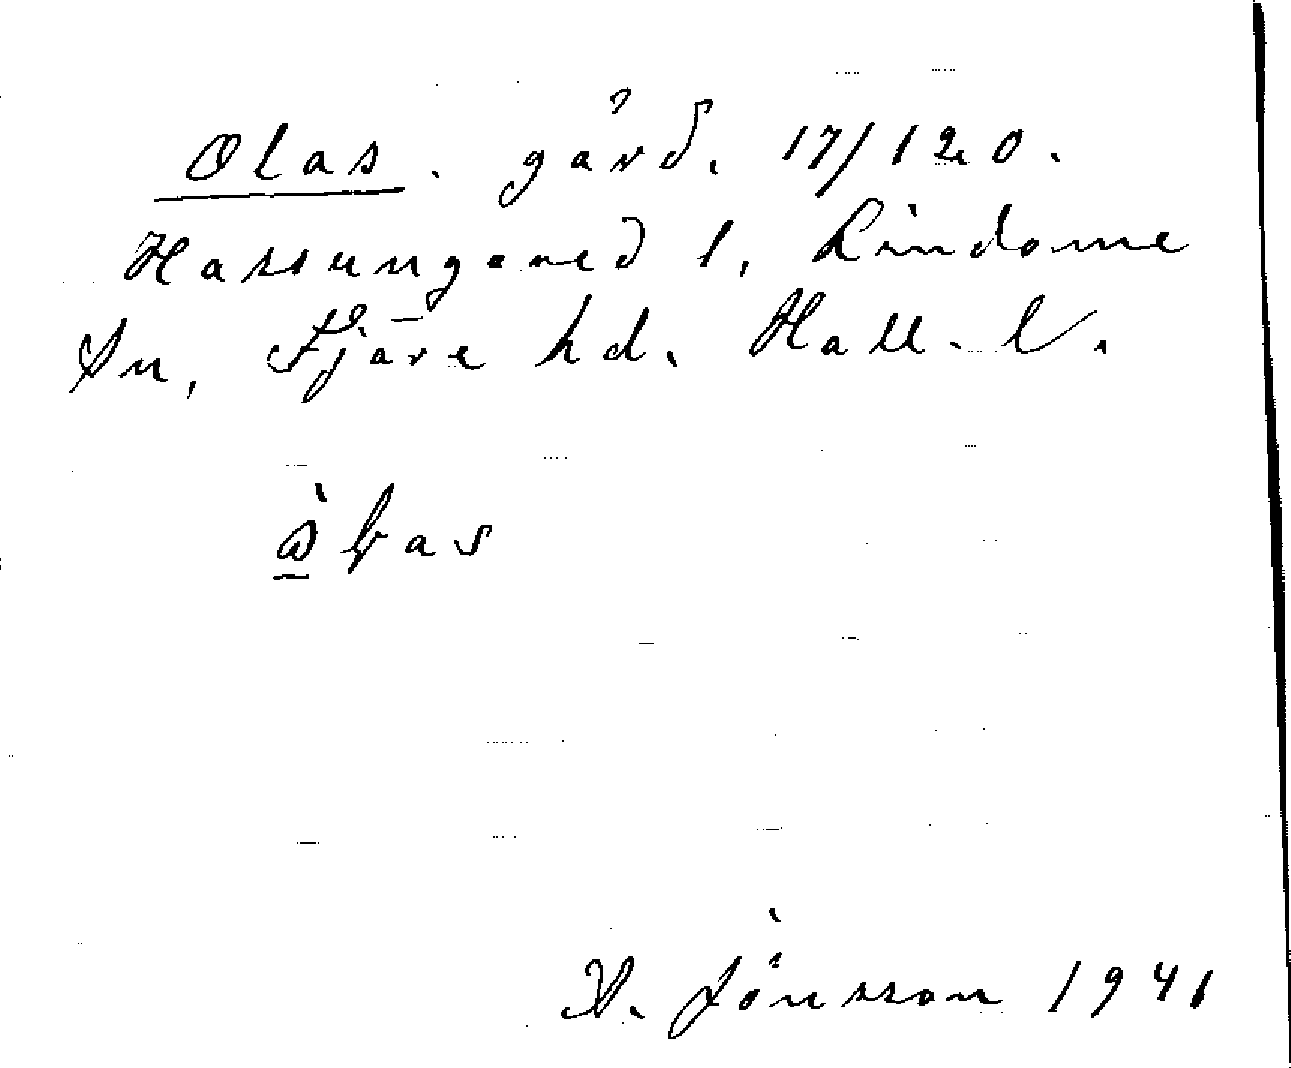 Olas. gård. 17/120.
Hassungared 1, Lindome
Sn, Fjäre hd. Hall. l.
V. Jönsson 1941